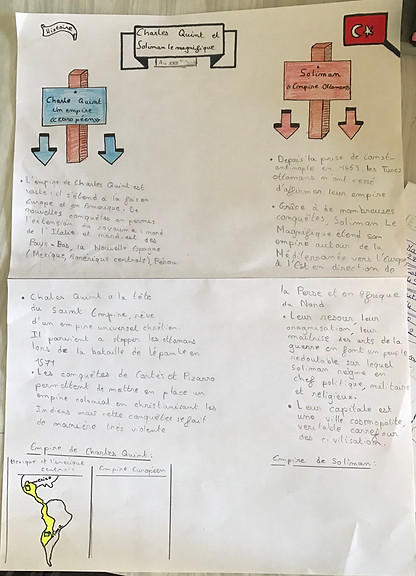 Histoire
Charles Quint et
Soliman le magnifique
Au
Charle Quint
Un empire
européen
Soliman
Empire Ottoman
• L'empire de Charles Quint est
vaste : il s'étend à la fois
Europe et en Amérique. De
nouvelles conquêtes on permis
l'extension du royaume : nord
de l'Italie et nord-est des
Pays-Bas, la Nouvelle Espagne
(Mexique, Amérique centrale), Pérou.
• Charles Quint a la tête
du Saint Empire, rêve
d'un empire universel chrétien.
Il parvient a stopper les ottomans
lors de la bataille de Lépante en
1571
• Les conquêtes de Cortés et Pizarro
permettent de mettre en place un
empire colonial en christianisant les
Indiens mais cette conquêtes se fait
de manière très violente
• Depuis la prise de Const-
antinople en 1453 les Turcs
Ottomans n'ont cessé
d'affirmer leur empire
• Grâce à de nombreuses
conquêtes, Soliman Le
Magnifique étend son
empire autour de la
Méditerranée vers l'Europe
à l'Est en direction de
la Perse et en Afrique
du Nord.
• Leur organisation, leur
maîtrise des arts de la
guerre en font un peuple
redoutable sur lequel
Soliman règne en
chef politique, militaire
et religieux.
• Leur capitale est
une ville cosmopolite,
véritable carrefour
des civilisation.
Empire de Charles Quint :
Mexique et l'amérique
centrale
Empire Européen
Empire de Soliman :